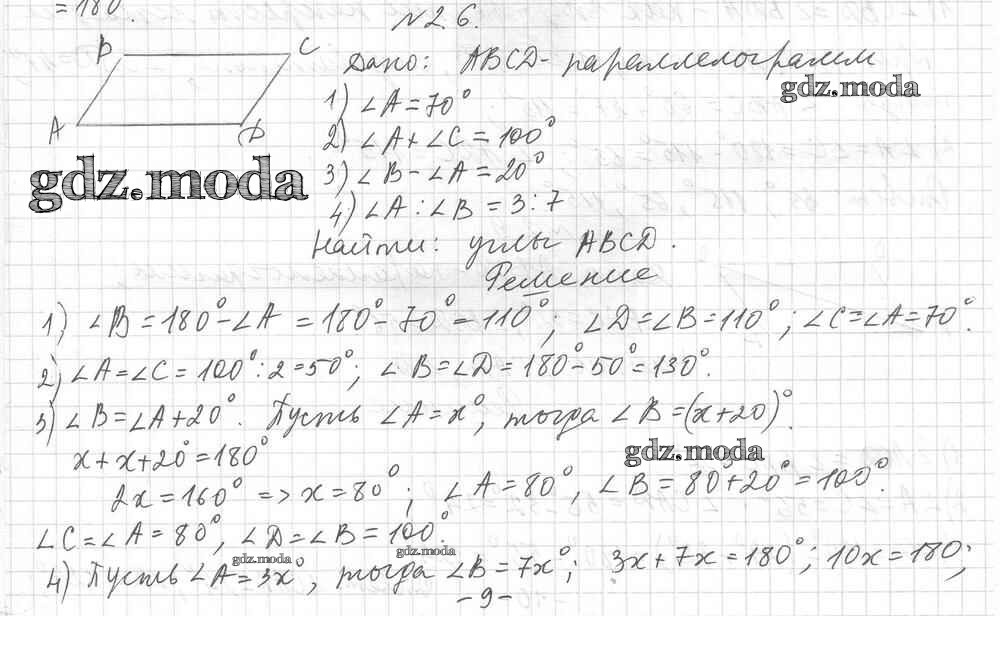 = 180.
N 2.6.
B C
A D
Дано: ABCD - параллелограмм
gdz.moda
1) ∠A = 70°
2) ∠A + ∠C = 100°
gdz.moda
3) ∠B - ∠A = 20°
4) ∠A : ∠B = 3 : 7
Найти: углы ABCD.
Решение
1) ∠B = 180° - ∠A = 180° - 70° = 110°; ∠D = ∠B = 110°; ∠C = ∠A = 70°.
2) ∠A = ∠C = 100° : 2 = 50°; ∠B = ∠D = 180° - 50° = 130°.
3) ∠B = ∠A + 20°. Пусть ∠A = x°, тогда ∠B = (x + 20)°.
x + x + 20° = 180°
gdz.moda
2x = 160° => x = 80°; ∠A = 80°, ∠B = 80° + 20° = 100°.
∠C = ∠A = 80°, ∠D = ∠B = 100°.
gdz.moda gdz.moda
4) Пусть ∠A = 3x°, тогда ∠B = 7x°; 3x + 7x = 180°; 10x = 180;
- 9 -